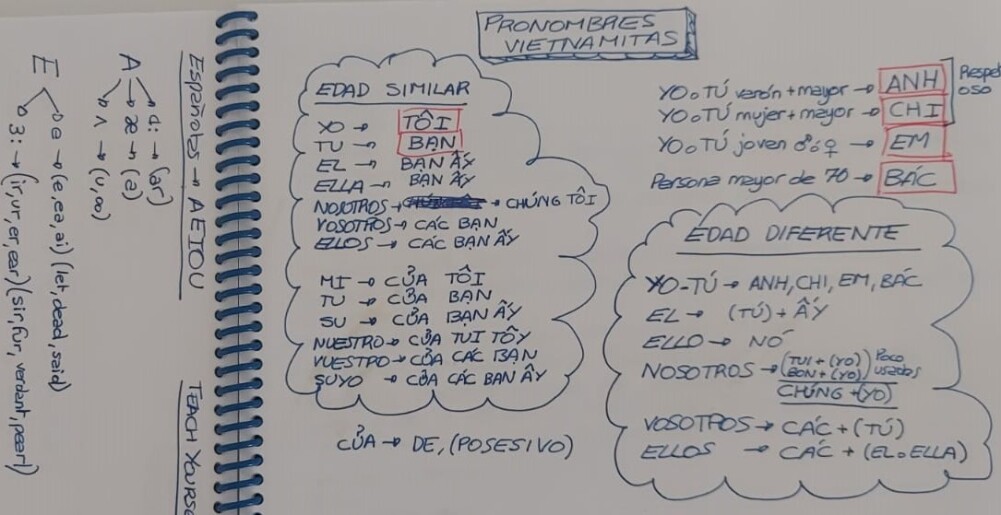 PRONOMBRES
VIETNAMITAS
EDAD SIMILAR
YO → TÔI
TU → BẠN
EL → BẠN ẤY
ELLA → BẠN ẤY
NOSOTROS → → CHÚNG TÔI
VOSOTROS → CÁC BẠN
ELLOS → CÁC BẠN ẤY
MI → CỦA TÔI
TU → CỦA BẠN
SU → CỦA BẠN ẤY
NUESTRO → CỦA TUI TÔY
VUESTRO → CỦA CÁC BẠN
SUYO → CỦA CÁC BẠN ẤY
CỦA → DE, (POSESIVO)
YO o TÚ varón + mayor → ANH
YO o TÚ mujer + mayor → CHI
Respetoso
YO o TÚ joven ♂ó♀ → EM
Persona mayor de 70 → BÁC
EDAD DIFERENTE
YO-TÚ → ANH, CHI, EM, BÁC
EL → (TÚ) + ẤY
ELLO → NÓ
NOSOTROS → (TUI + (YO)
BON + (YO)) Poco usados
CHÚNG + (YO)
VOSOTROS → CÁC + (TÚ)
ELLOS → CÁC + (EL o ELLA)
Españoles → AEIOU
A
ɑ: → (ar)
æ → (a)
ʌ → (u, oo)
E
e → (e, ea, ai) (let, dead, said)
ɜ: → (ir, ur, er, ear) (sir, fur, verdant, pearl)
TEACH YOURSE